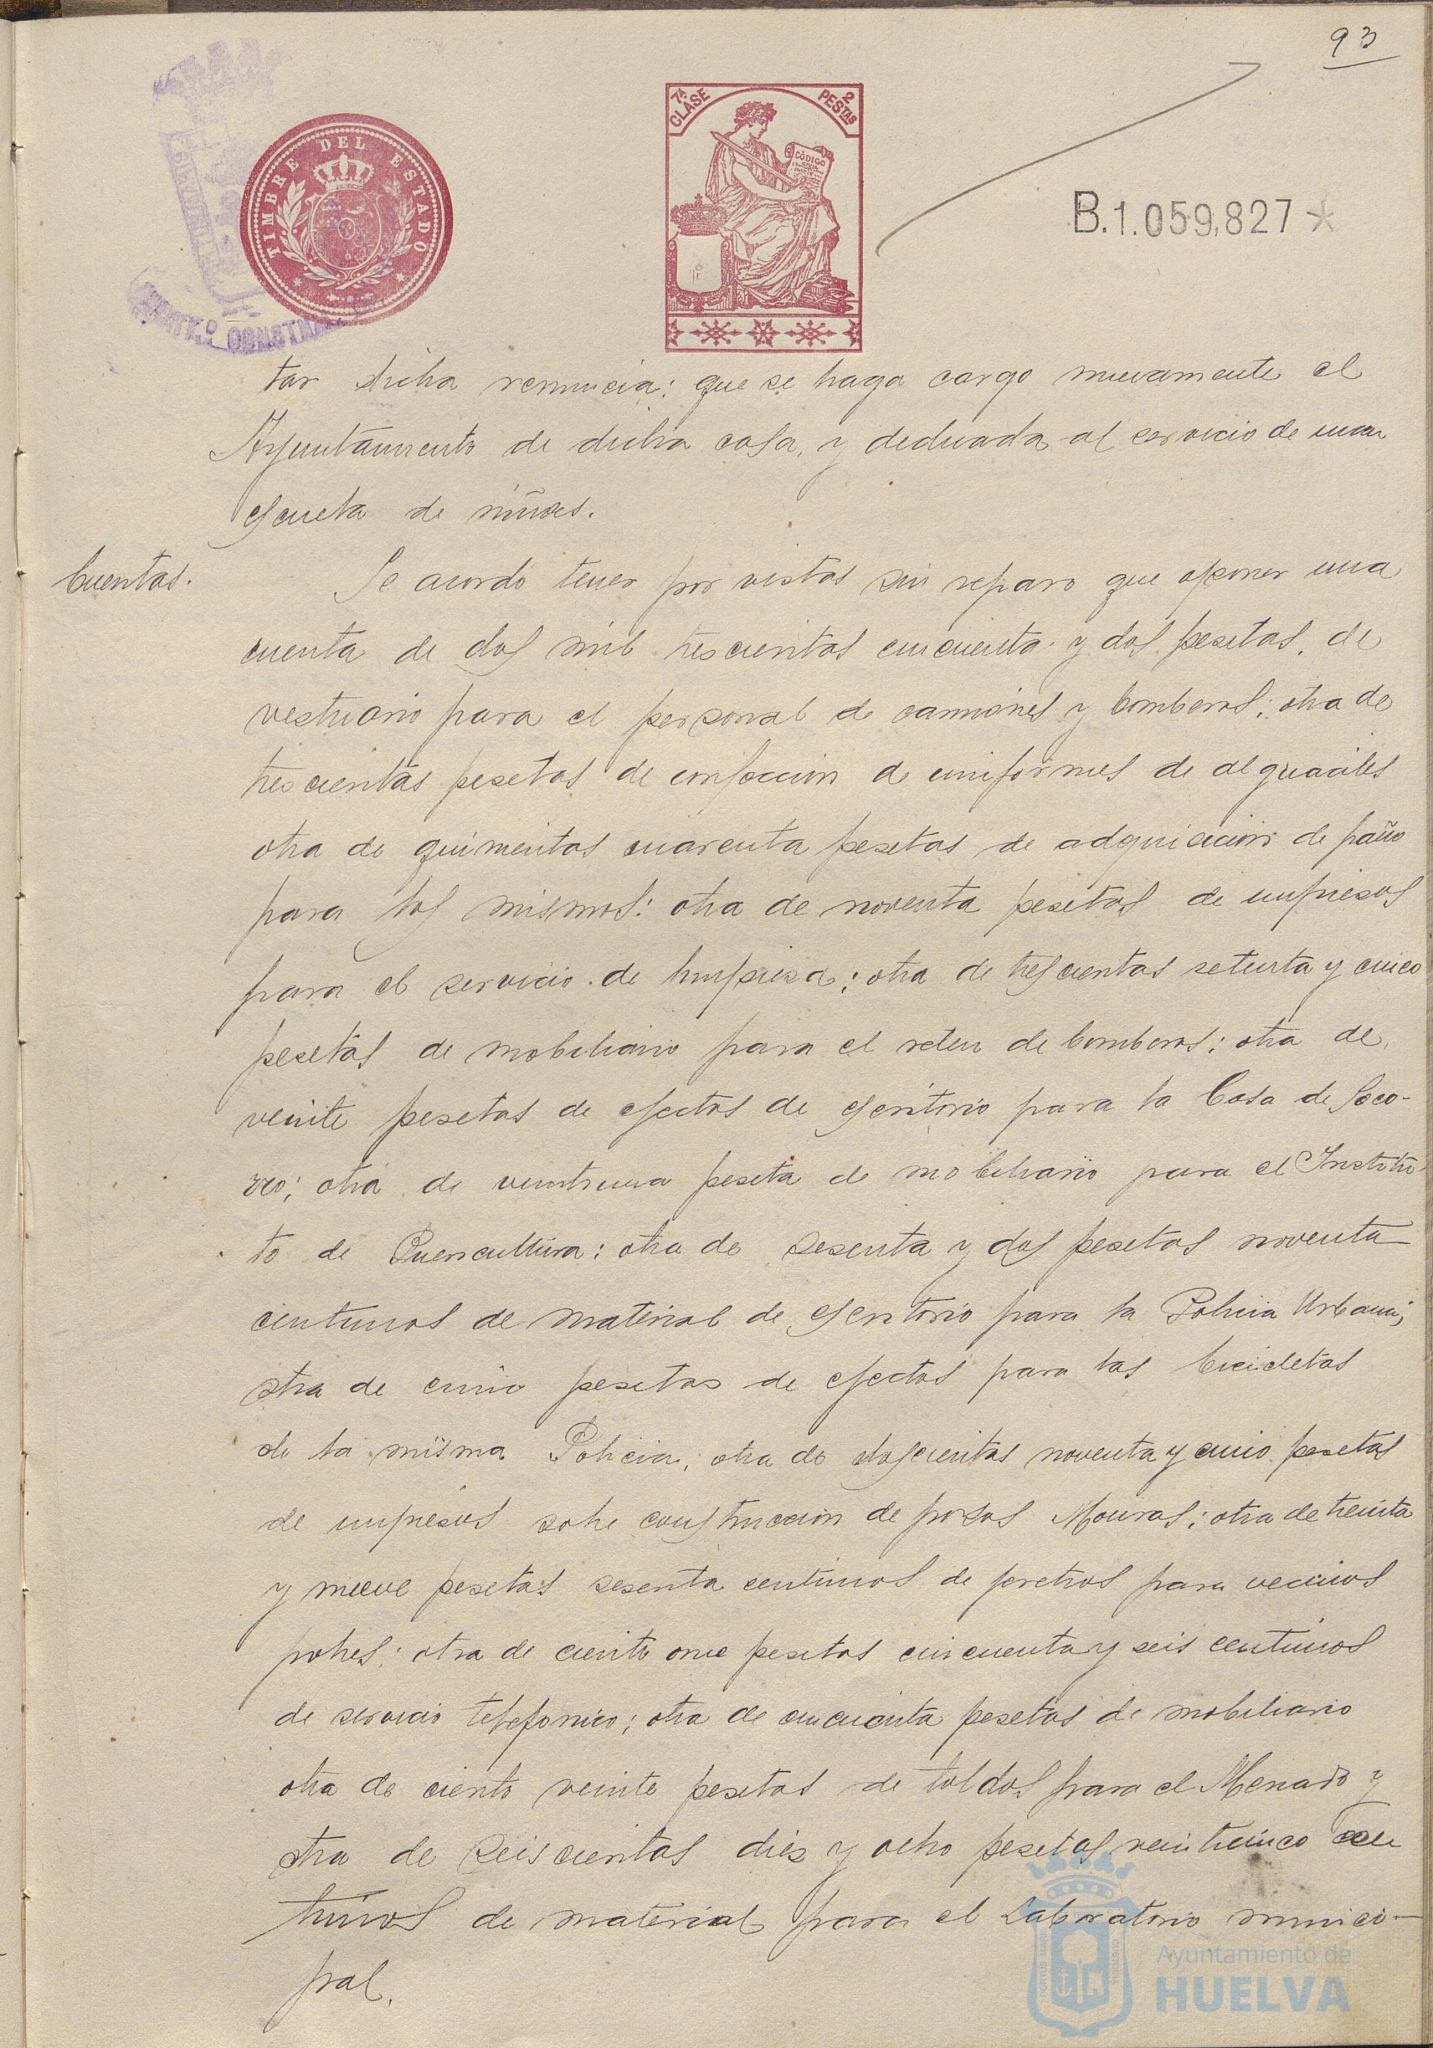 93
TIMBRE DEL ESTADO
7ª CLASE
2 PESTAS
CÓDIGO
B.1.059,827*
CONSTNAL
tar dicha renuncia: que se haga cargo nuevamente el
Ayuntamiento de dicha casa, y dedicada al servicio de una
escuela de niñas.
Cuentas.
Se acordó tener por vistas sin reparo que oponer una
cuenta de dos mil trescientas cincuenta y dos pesetas, de
vestuario para el personal de camiones y bomberos; otra de
trescientas pesetas de confeccion de uniformes de alguaciles
otra de quinientas cuarenta pesetas de adquisicion de paño
para los mismos: otra de noventa pesetas de impresos
para el servicio de limpieza; otra de trescientas setenta y cinco
pesetas de mobiliario para el reten de bomberos; otra de
veinte pesetas de efectos de escritorio para la Casa de Soco-
rro; otra de veintiuna peseta de mobiliario para el Institu
to de Puericultura: otra de sesenta y dos pesetas noventa
centimos de material de escritorio para la Policia Urbana;
otra de cinco pesetas de efectos para las bicicletas
de la misma Policia, otra de doscientas noventa y cinco pesetas
de impresos sobre construccion de pozos Mouras; otra de treinta
y nueve pesetas sesenta centimos de feretros para vecinos
pobres; otra de ciento once pesetas cincuenta y seis centimos
de servicio telefonico; otra de cincuenta pesetas de mobiliario
otra de ciento veinte pesetas de toldos para el Mercado y
otra de seiscientas diez y ocho pesetas veinticinco cen
timos de material para el Laboratorio munici-
pal.
Ayuntamiento de
HUELVA